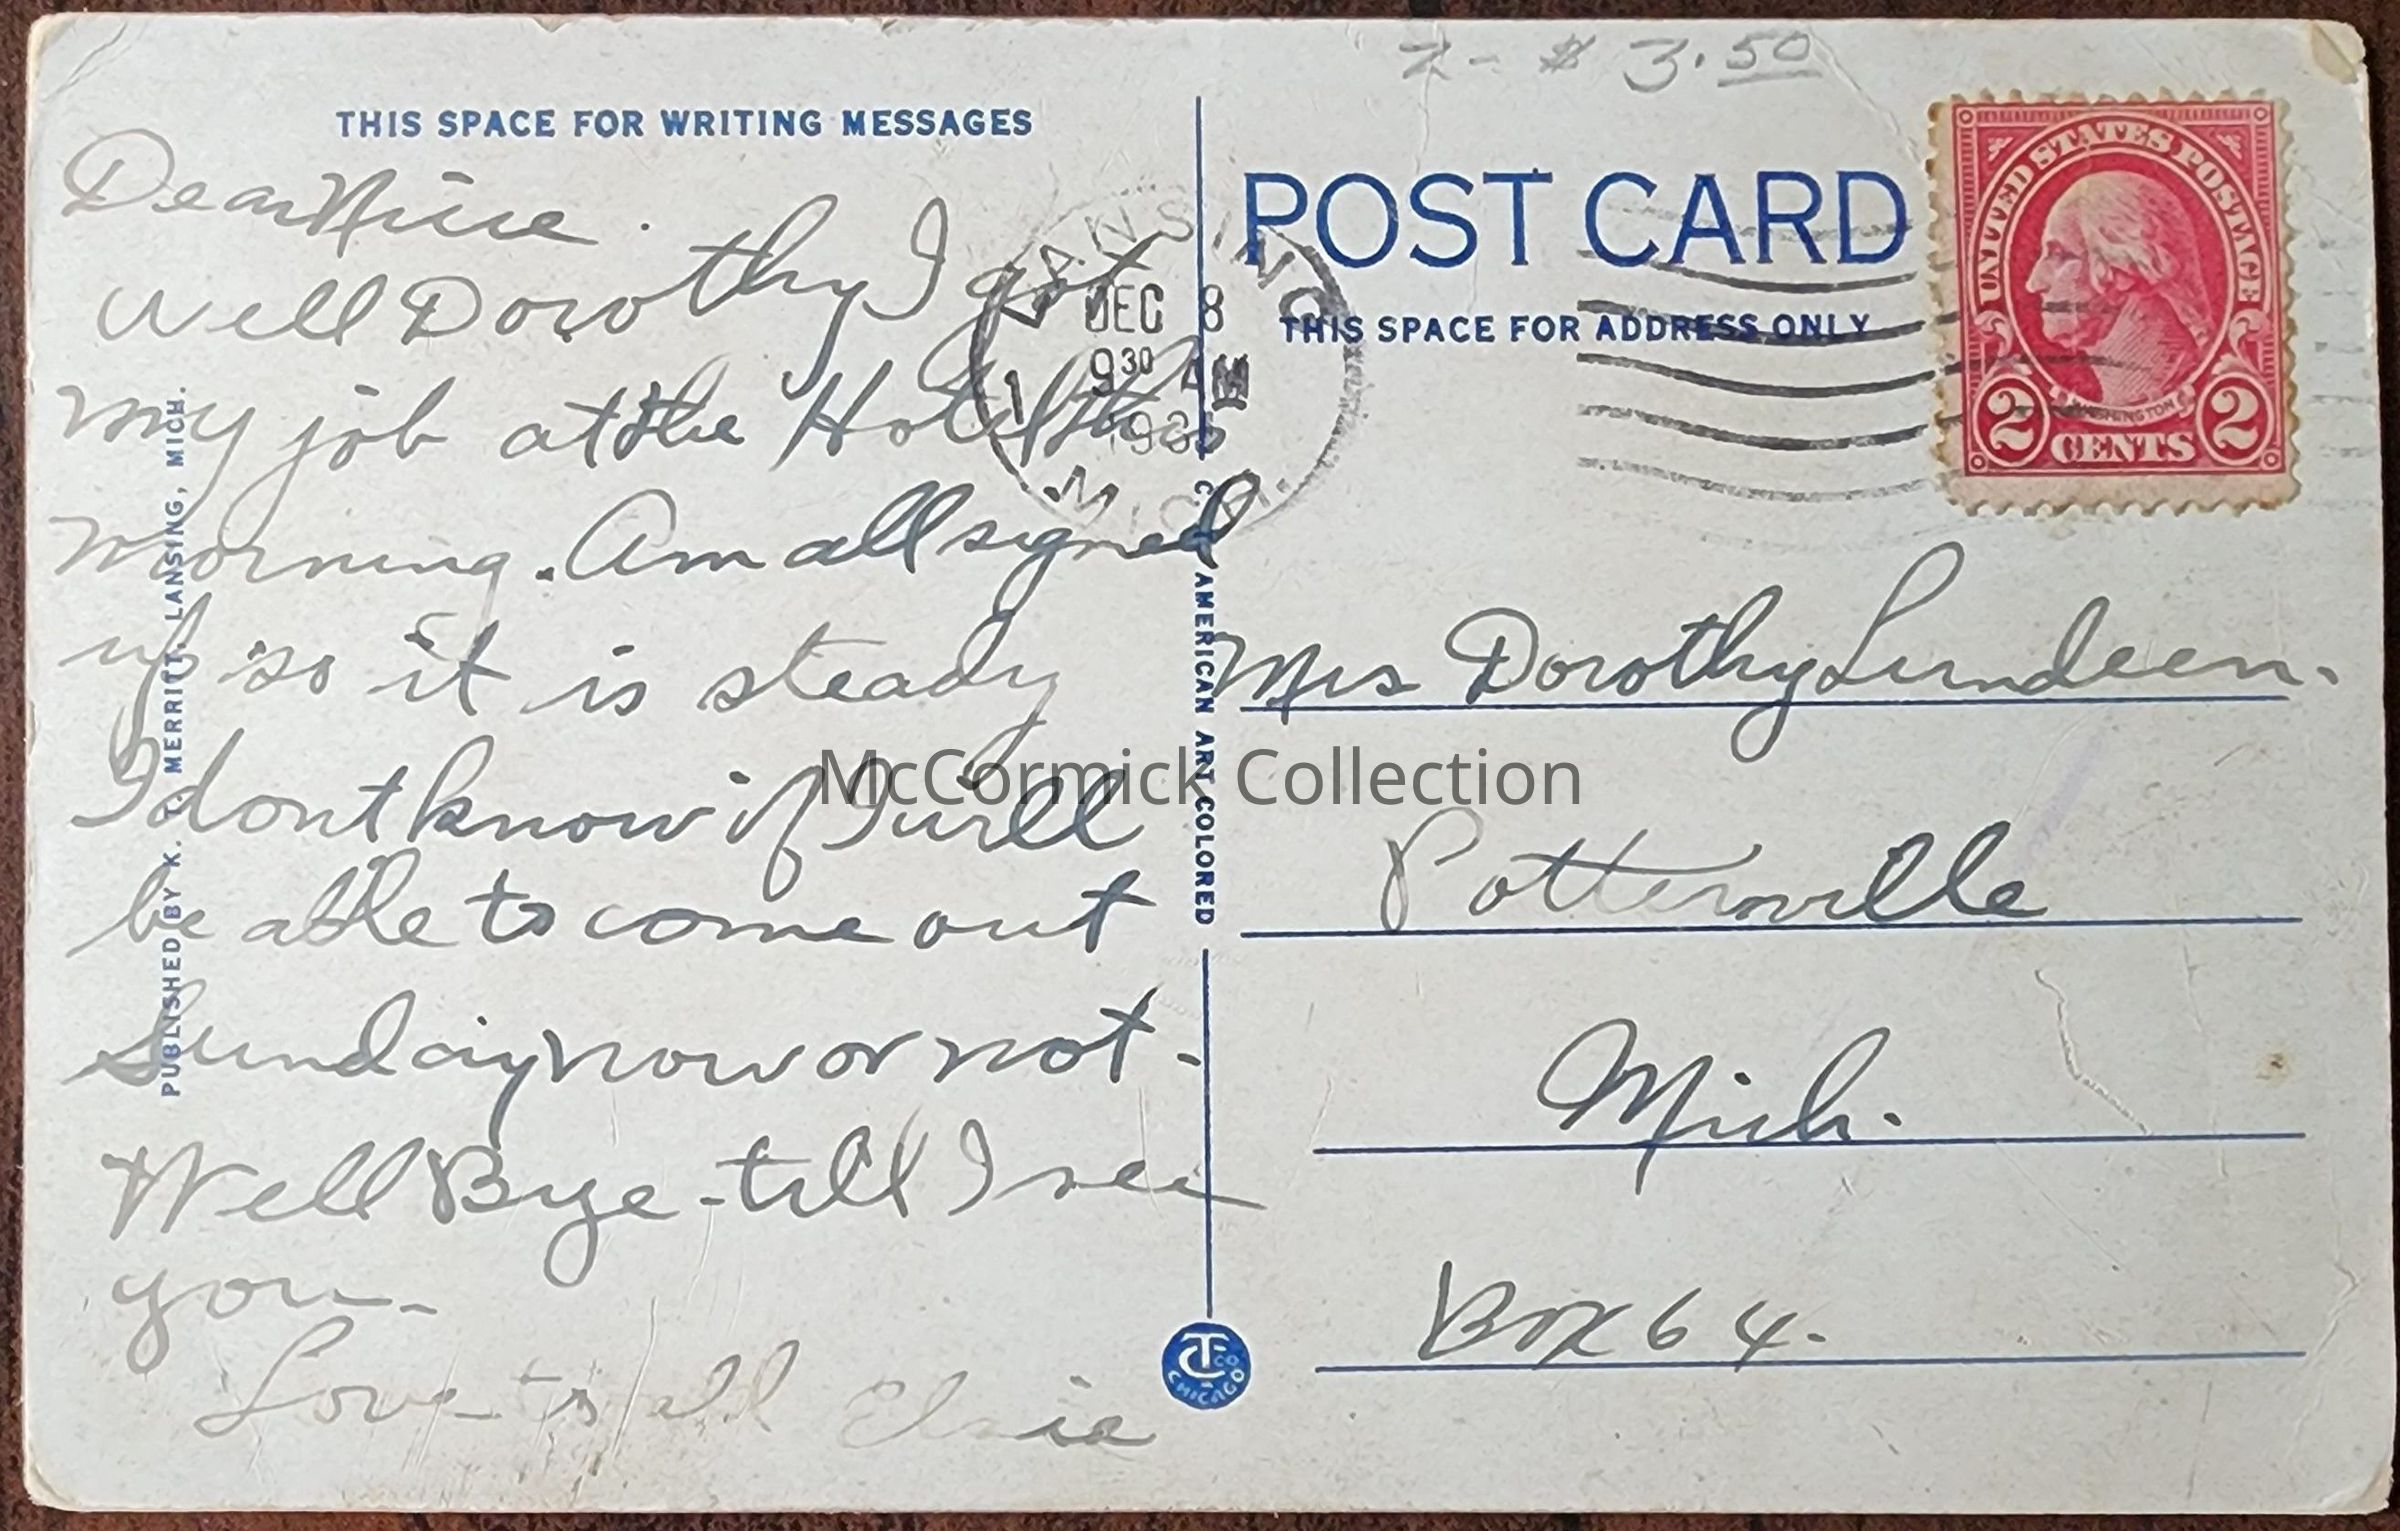 2 - $ 3.50
THIS SPACE FOR WRITING MESSAGES
Dear Niece.
Well Dorothy I got
my job at the Hotel this
morning. Am all signed
up so it is steady
I dont know if I will
be able to come out
Sunday now or not -
Well Bye - till I see
you -
Love to all Elsie
PUBLISHED BY K. T. MERRITT, LANSING, MICH.
LANSING
DEC 8
9 30 AM
MICH.
C. T. AMERICAN ART COLORED
POST CARD
THIS SPACE FOR ADDRESS ONLY
UNITED STATES POSTAGE
WASHINGTON
2 CENTS 2
Mrs Dorothy Lundeen.
Potterville
Mich.
Box 64.
CT CO
CHICAGO
McCormick Collection